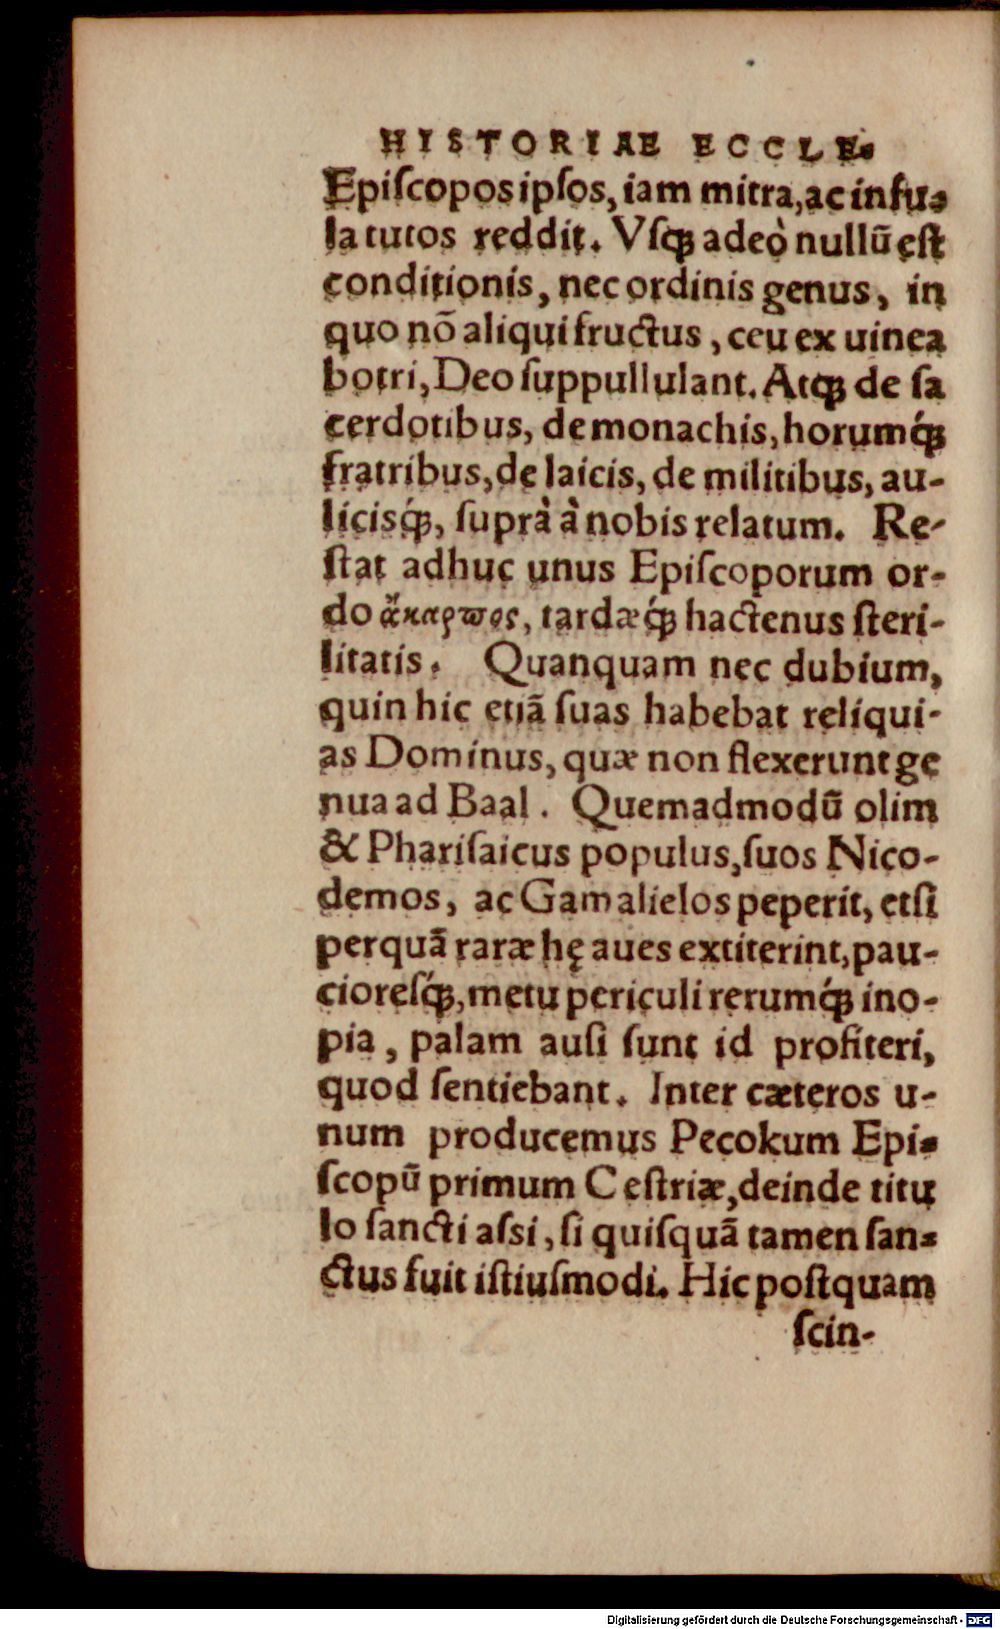 HISTORIAE ECCLE-
Epiſcopos ipſos, iam mitra, ac infu-
la tutos reddit. Vſq́ue adeò nullũ eſt
conditionis, nec ordinis genus, in
quo nõ aliqui fructus, ceu ex uinea
botri, Deo ſuppullulant. Atqꝫ de ſa
cerdotibus, de monachis, horumq́ꝫ
fratribus, de laicis, de militibus, au-
licisq́ꝫ, ſuprà à nobis relatum. Re-
ſtat adhuc unus Epiſcoporum or-
do ἄκαρπος, tardæq́ꝫ hactenus ſteri-
litatis. Quanquam nec dubium,
quin hic etiã ſuas habebat reliqui-
as Dominus, quæ non flexerunt ge
nua ad Baal. Quemadmodũ olim
& Phariſaicus populus, ſuos Nico-
demos, ac Gamalielos peperit, etſi
perquã raræ hę aues extiterint, pau-
cioreſq́ꝫ, metu periculi rerumq́ꝫ ino-
pia, palam auſi ſunt id profiteri,
quod ſentiebant. Inter cæteros u-
num producemus Pecokum Epi-
ſcopũ primum Ceſtriæ, deinde titu
lo ſancti aſsi, ſi quiſquã tamen ſan-
ctus fuit iſtiuſmodi. Hic poſtquam
ſcin-
Digitalisierung gefördert durch die Deutsche Forschungsgemeinschaft - DFG